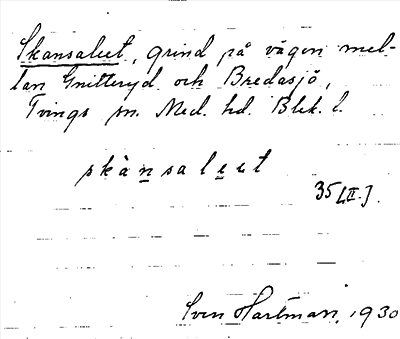 Skansaleet, grind på vägen mel-
lan Gnitteryd och Bredasjö,
Tvings sn. Med. hd. Blek. l.
skànsaleet
35[II.]
Sven Hartman, 1930